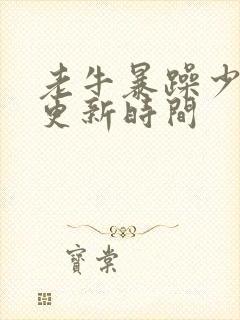 老牛暴躁少
更新時間
寶棠